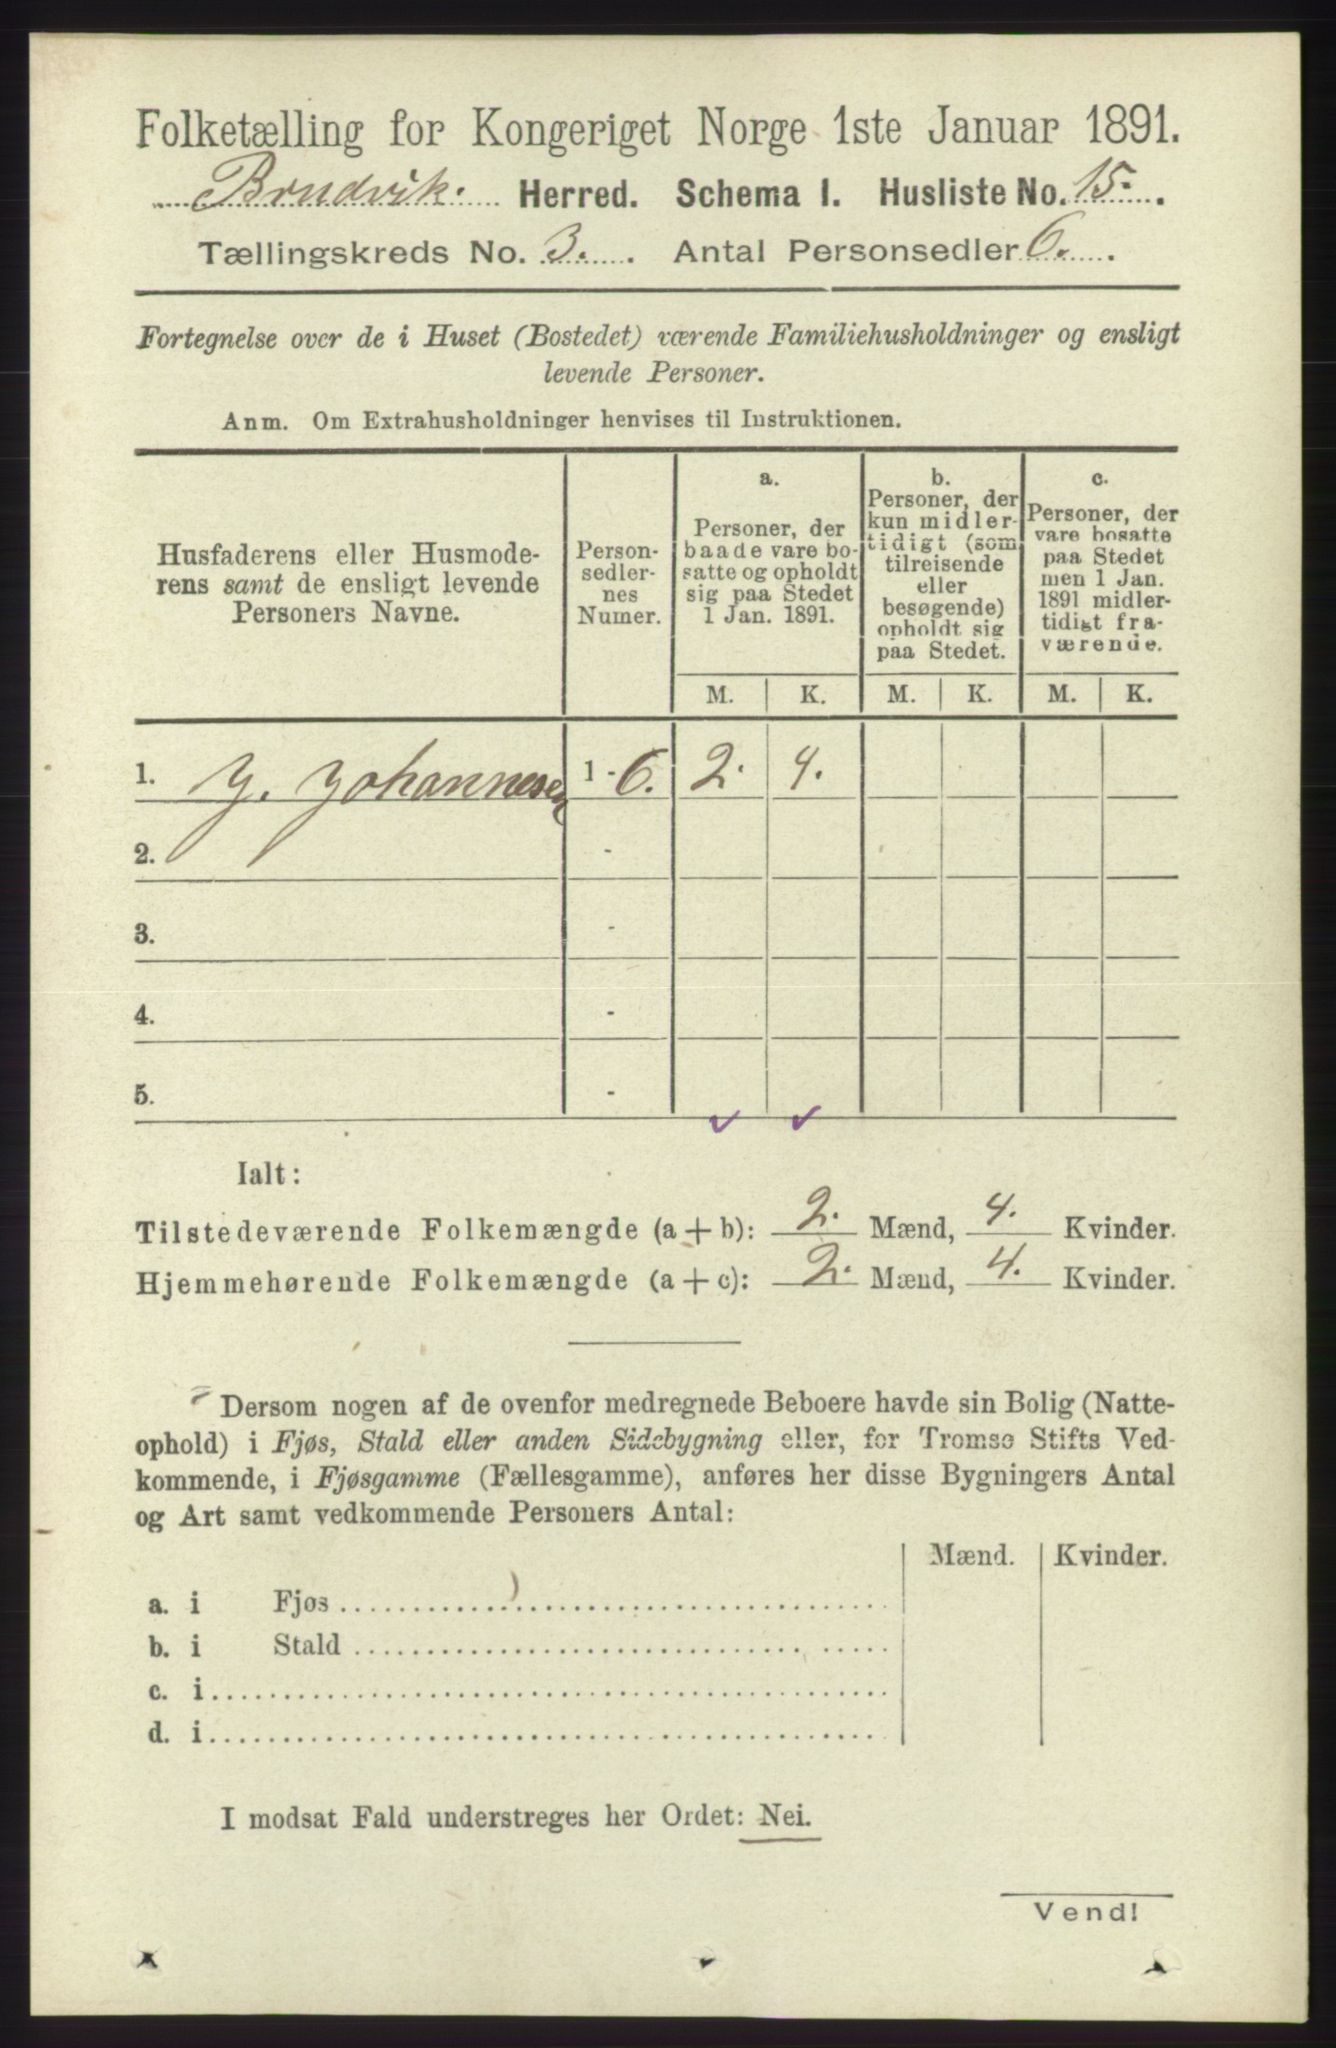 Folketælling for Kongeriget Norge 1ste Januar 1891.
Brudvik. Herred. Schema I. Husliste No. 15.
Tællingskreds No. 3. Antal Personsedler 6.
Fortegnelse over de i Huset (Bostedet) værende Familiehusholdninger og ensligt
levende Personer.
Anm. Om Extrahusholdninger henvises til Instruktionen.
Husfaderens eller Husmode-
rens samt de ensligt levende
Personers Navne.
Person-
sedler-
nes
Numer.
a.
Personer, der
baade vare bo-
satte og opholdt
sig paa Stedet
1 Jan. 1891.
b.
Personer, der
kun midler-
tidigt (som
tilreisende
eller
besøgende)
opholdt sig
paa Stedet.
c.
Personer, der
vare bosatte
paa Stedet
men 1 Jan.
1891 midler-
tidigt fra-
værende.
M. K. M. K. M. K.
1. J. Johannesen 1 - 6. 2. 4.
2. -
3. -
4. -
5. -
Ialt:
Tilstedeværende Folkemængde (a + b): 2. Mænd, 4. Kvinder.
Hjemmehørende Folkemængde (a + c): 2. Mænd, 4. Kvinder.
Dersom nogen af de ovenfor medregnede Beboere havde sin Bolig (Natte-
ophold) i Fjøs, Stald eller anden Sidebygning eller, for Tromsø Stifts Ved-
kommende, i Fjøsgamme (Fællesgamme), anføres her disse Bygningers Antal
og Art samt vedkommende Personers Antal:
Mænd. Kvinder.
a. i Fjøs
b. i Stald
c. i
d. i
I modsat Fald understreges her Ordet: Nei.
Vend!